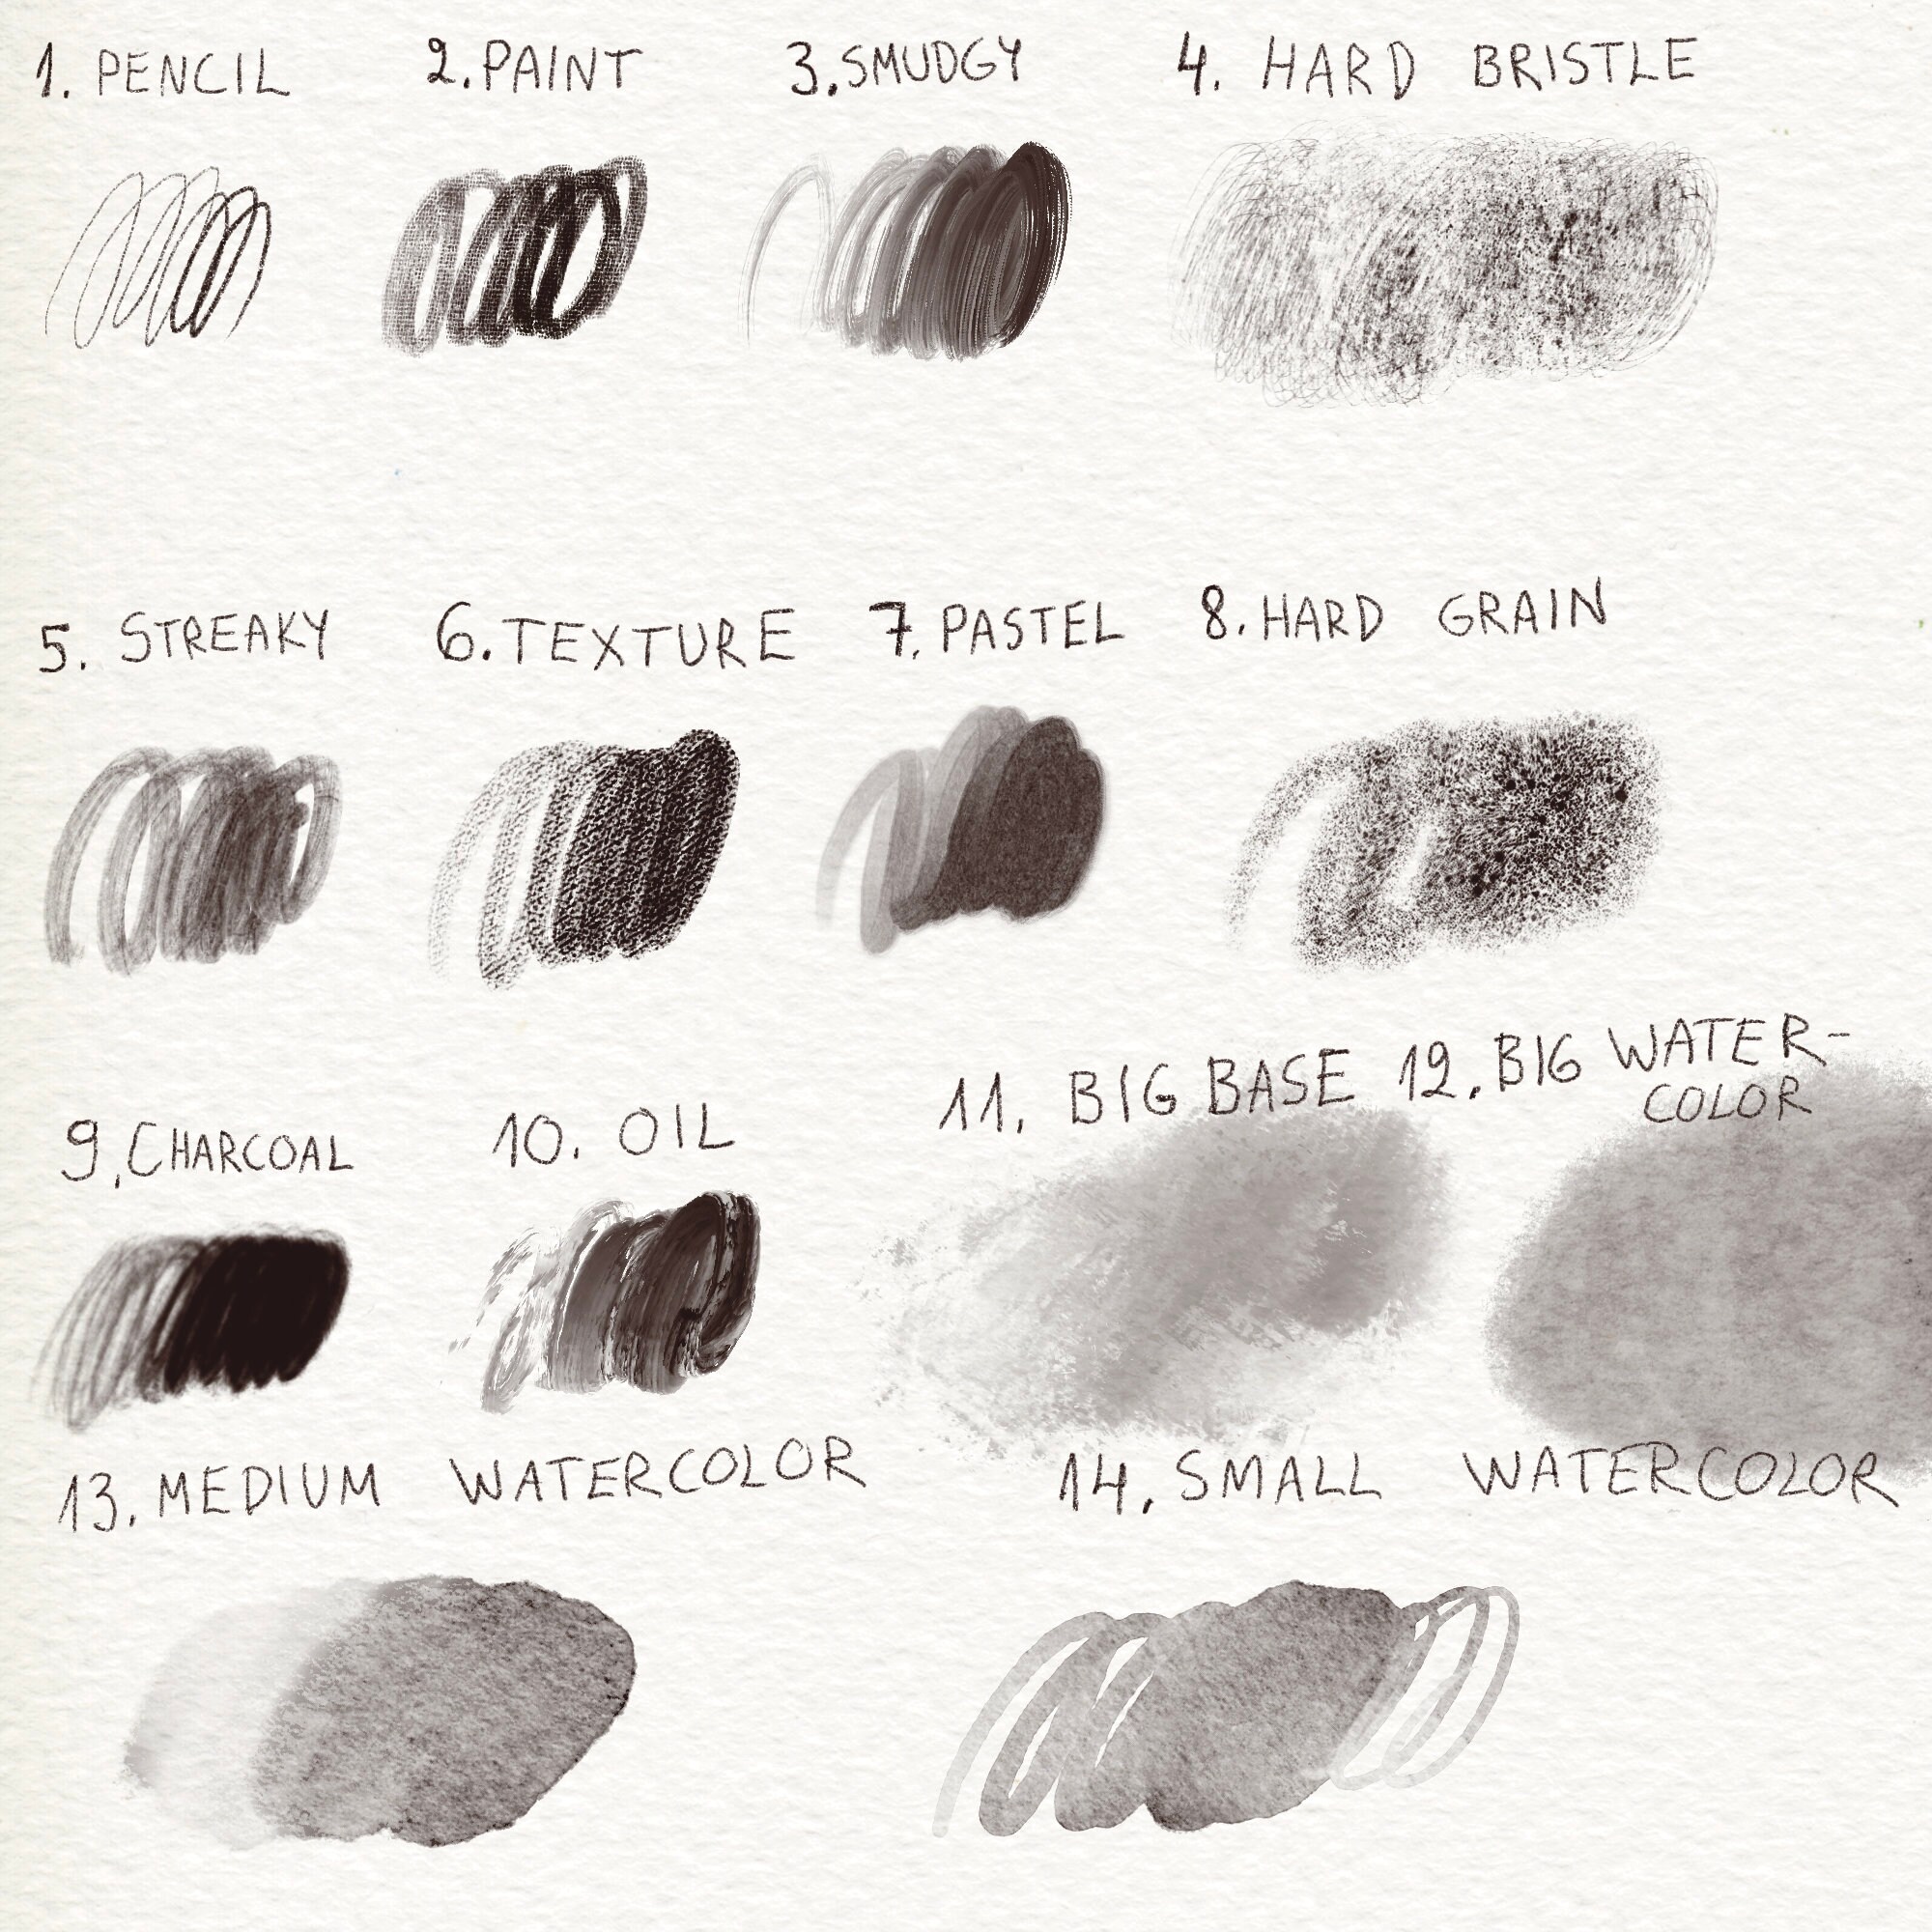 1. PENCIL
2. PAINT
3. SMUDGY
4. HARD BRISTLE
5. STREAKY
6. TEXTURE
7. PASTEL
8. HARD GRAIN
9. CHARCOAL
10. OIL
11. BIG BASE
12. BIG WATER-
COLOR
13. MEDIUM WATERCOLOR
14. SMALL WATERCOLOR